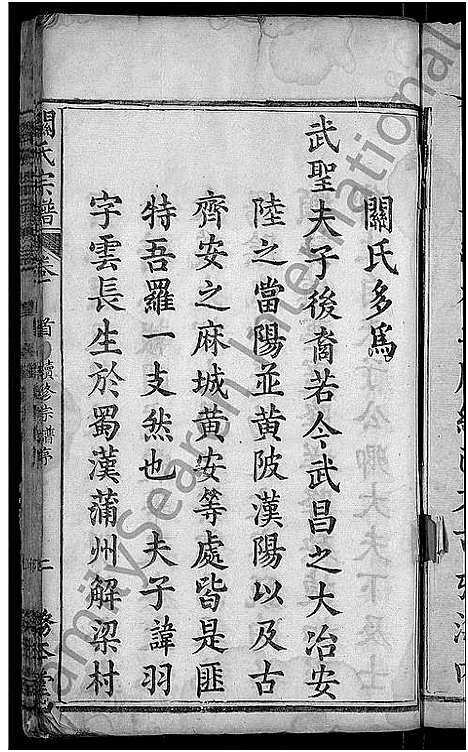 關氏多為
武聖夫子後裔若今武昌之大冶安
陸之當陽並黃陂漢陽以及古
齊安之麻城黃安等處皆是匪
特吾羅一支然也 夫子諱羽
字雲長生於蜀漢蒲州解梁村
關氏宗譜
卷一
首
續修宗譜序
二
FamilySearch International